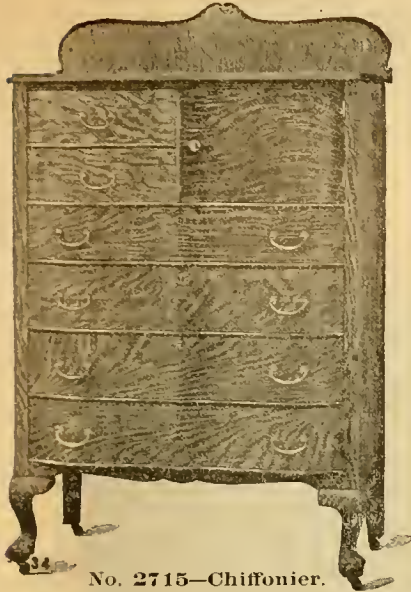 34
No. 2715—Chiffonier.